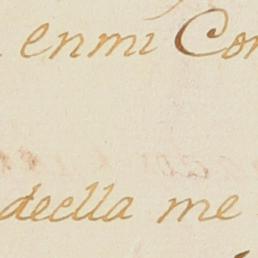 enmi Con
deella me